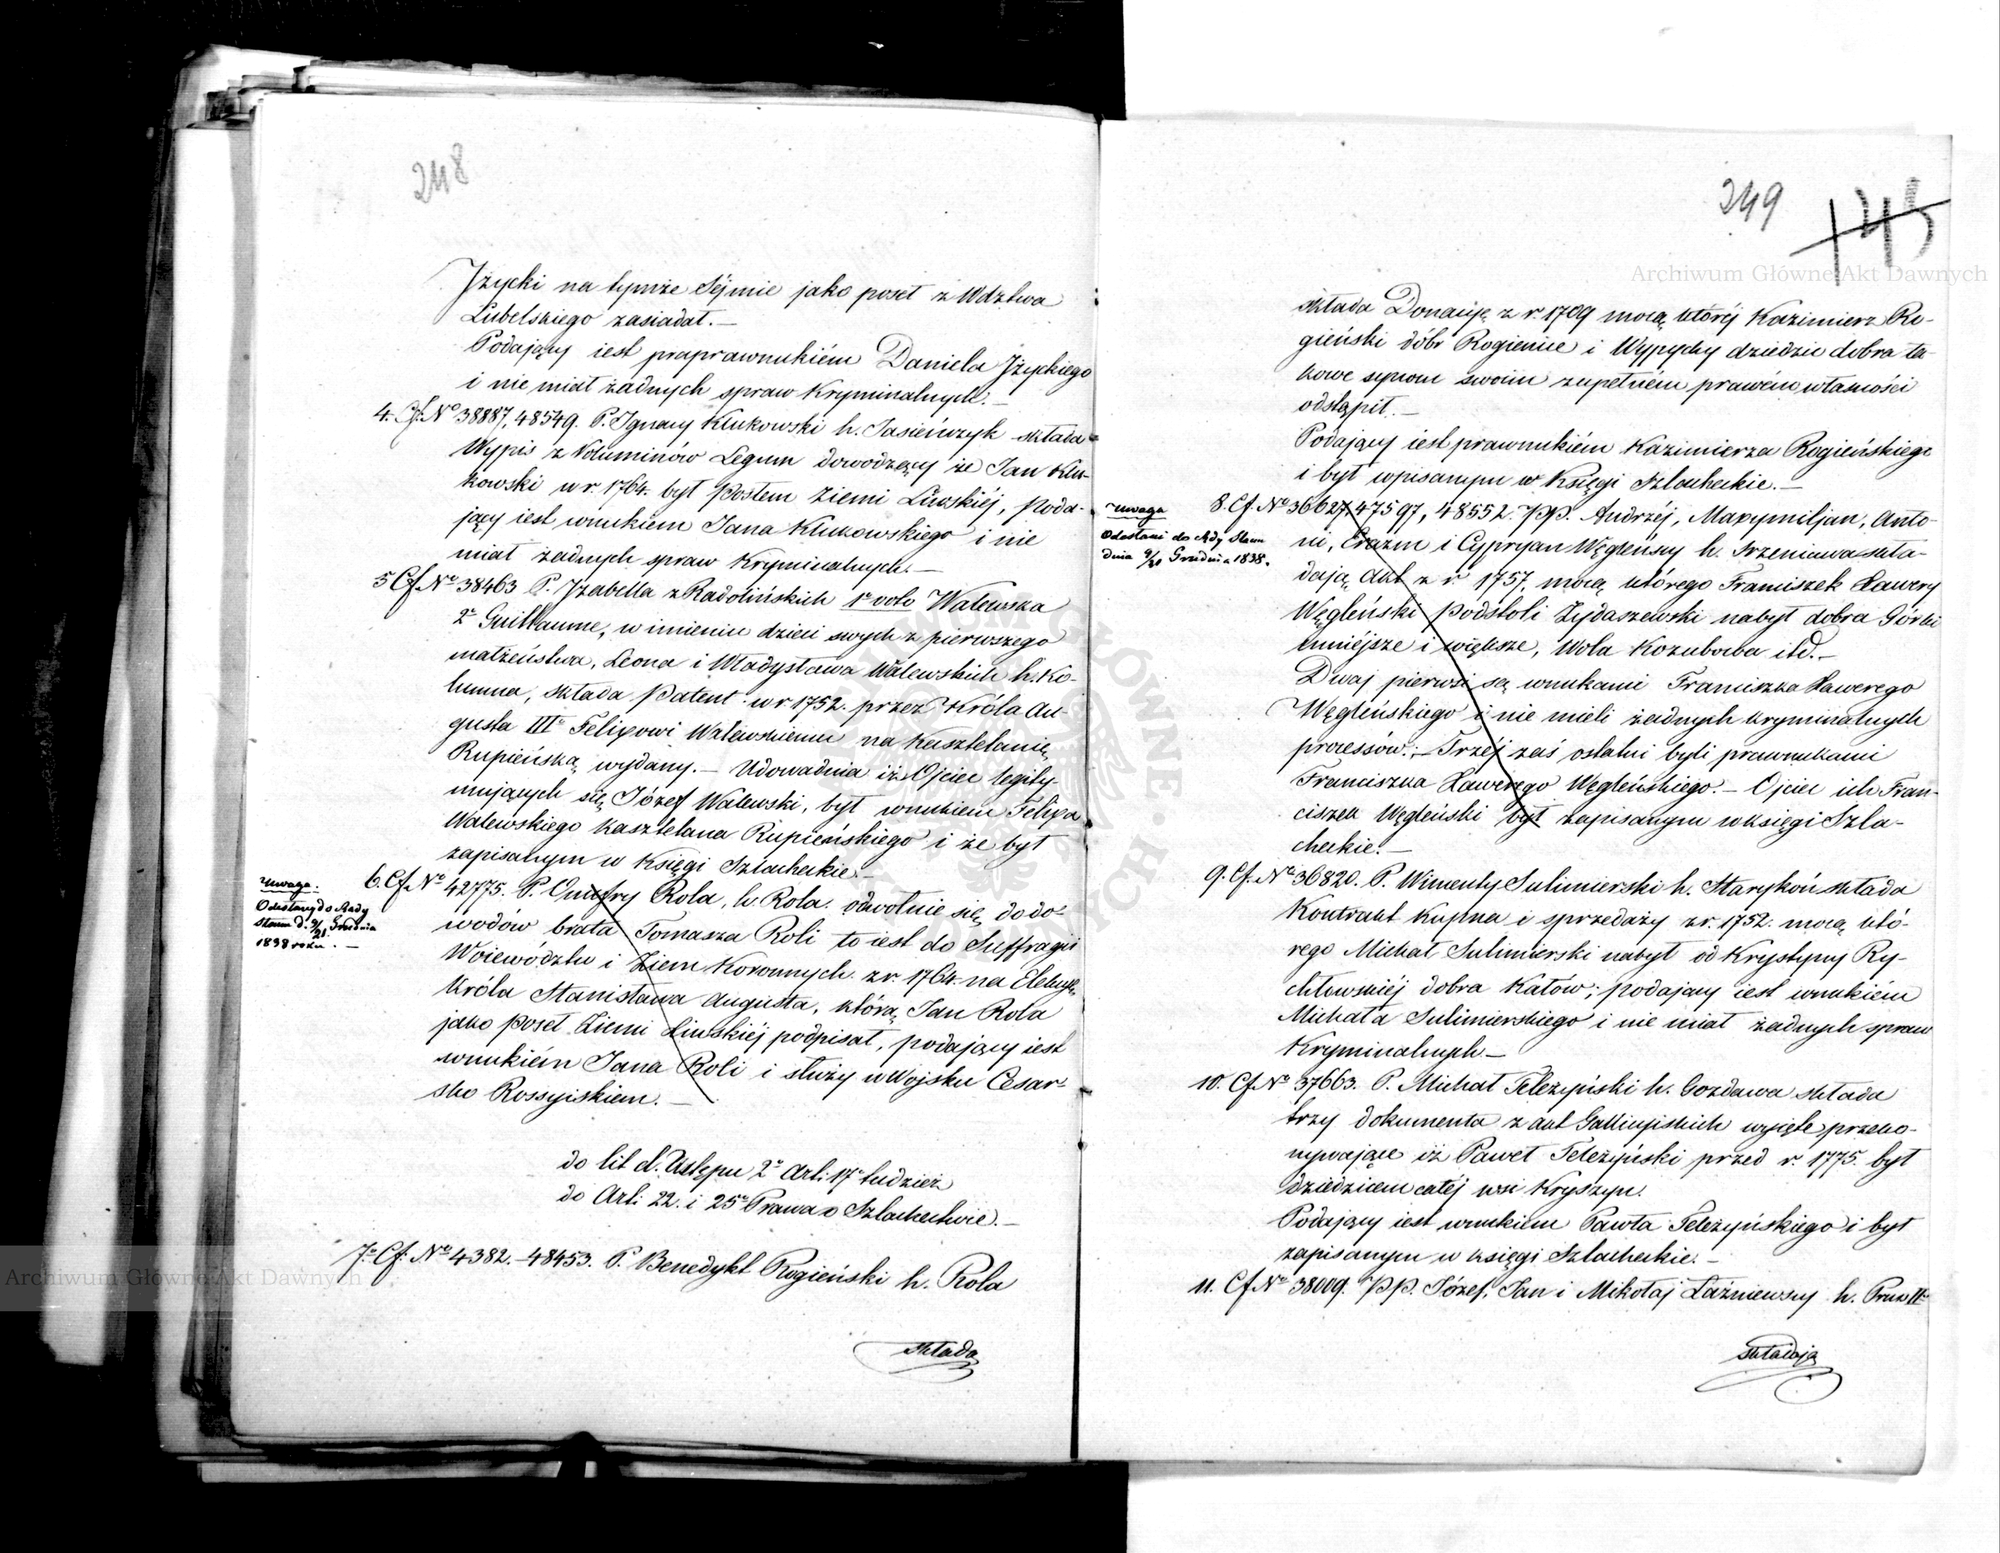 248
Jżycki na tymże Séjmie jako poseł z Wdztwa
Lubelskiego zasiadał.—
Podający iest praprawnukiém Daniela Jżyckiego
i nie miał żadnych spraw Kryminalnych.—
4. Cf. No 38887, 48549. P. Jgnacy Klukowski h. Jasieńczyk składa
Wypis z Voluminów Legum dowodzący że Jan Klu-
kowski w r. 1764. był Posłem Ziemi Liwskiéj, poda-
jący iest wnukiem Jana Klukowskiego i nie
miał żadnych spraw Kryminalnych.—
5 Cf. No 38463 P. Jzabella z Radolińskich 1o voto Walewska
2o Guillaume, w imieniu dzieci swych z pierwszego
małżeństwa, Leona i Władysława Walewskich h. Ko-
lumna, składa Patent w r. 1752. przez Króla Au-
gusta IIIo Felixowi Walewskiemu na Kasztelanię
Rupieńską wydany.— Udowadnia iż Ojciec legity-
mujących się, Józef Walewski, był wnukiem Felixa
Walewskiego Kasztelana Rupieńskiego i że był
zapisanym w Księgi Szlacheckie.—
Uwaga:
Odesłany do Rady
Stanu d. 9/21 Grudnia
1838 roku. —
6. Cf. No 42775. P. Onufry Rola, h. Rola. odwołuie się do do-
wodów brata Tomasza Roli to iest do Suffragii
Woiewództw i Ziem Koronnych z r. 1764. na Elekcyę
Króla Stanisława Augusta, którą Jan Rola
jako Poseł Ziemi Liwskiéj podpisał, podający iest
wnukiém Jana Roli i służy w Wojsku Cesar-
sko Rossyiskiem.—
do lit d. Ustępu 2o Art: 17o tudzież
do Art: 22. i 25o Prawa o Szlachectwie.—
7o Cf. No 4382.-48453. P. Benedykt Rogieński h. Rola
składa
249
145
składa Donacyę z r. 1709 mocą któréj Kazimierz Ro-
gieński dóbr Rogienice i Wypychy dziedzic dobra ta-
kowe synom swoim zupełném prawém własności
odstąpił.—
Podający iest prawnukiém Kazimierza Rogieńskiego
i był wpisanym w Księgi Szlacheckie.—
Uwaga
Odesłani do Rdy Stanu
dnia 9/21 Grudnia 1838.
8. Cf. No 36627, 47597, 48552. PP. Andrzéj, Maxymiljan, Anto-
ni, Erazm i Cypryan Węgleńscy h. Szreniawa skła-
dają Akt z r 1757, mocą którego Franciszek Xawery
Węgleński Podstoli Żydaszewski nabył dobra Górki
mniéjsze i większe, Wola Kozubowa itd.—
Dwaj pierwsi są wnukami Franciszka Xawerego
Węgleńskiego i nie mieli żadnych kryminalnych
processów.;— Trzéj zaś ostatni byli prawnukami
Franciszka Xawerego Węgleńskiego.— Ojciec ich Fran-
ciszek Węgleński był zapisanym w księgi Szla-
checkie.—
9. Cf. No 36820. P. Wincenty Sulimierski h. Starykoń składa
Kontrakt Kupna i sprzedaży z r. 1752. mocą któ-
rego Michał Sulimierski nabył od Krystyny Ry-
chłowskiéj dobra Katów; podający iest wnukiém
Michała Sulimierskiego i nie miał żadnych spraw
Kryminalnych.—
10. Cf No 37663. P. Michał Teleżyński h. Gozdawa składa
trzy dokumenta z akt Gallicyjskich wyjęte przeko-
nywające iż Paweł Teleżyński przed r. 1775. był
dziedzicem całéj wsi Kryszyn.
Podający iest wnukiem Pawła Teleżyńskiego i był
zapisanym w księgi Szlacheckie.—
11. Cf No 38009. PP. Józef, Jan i Mikołaj Łaźniewscy h. Prus IIo
składają
Archiwum Główne Akt Dawnych
Archiwum Główne Akt Dawnych